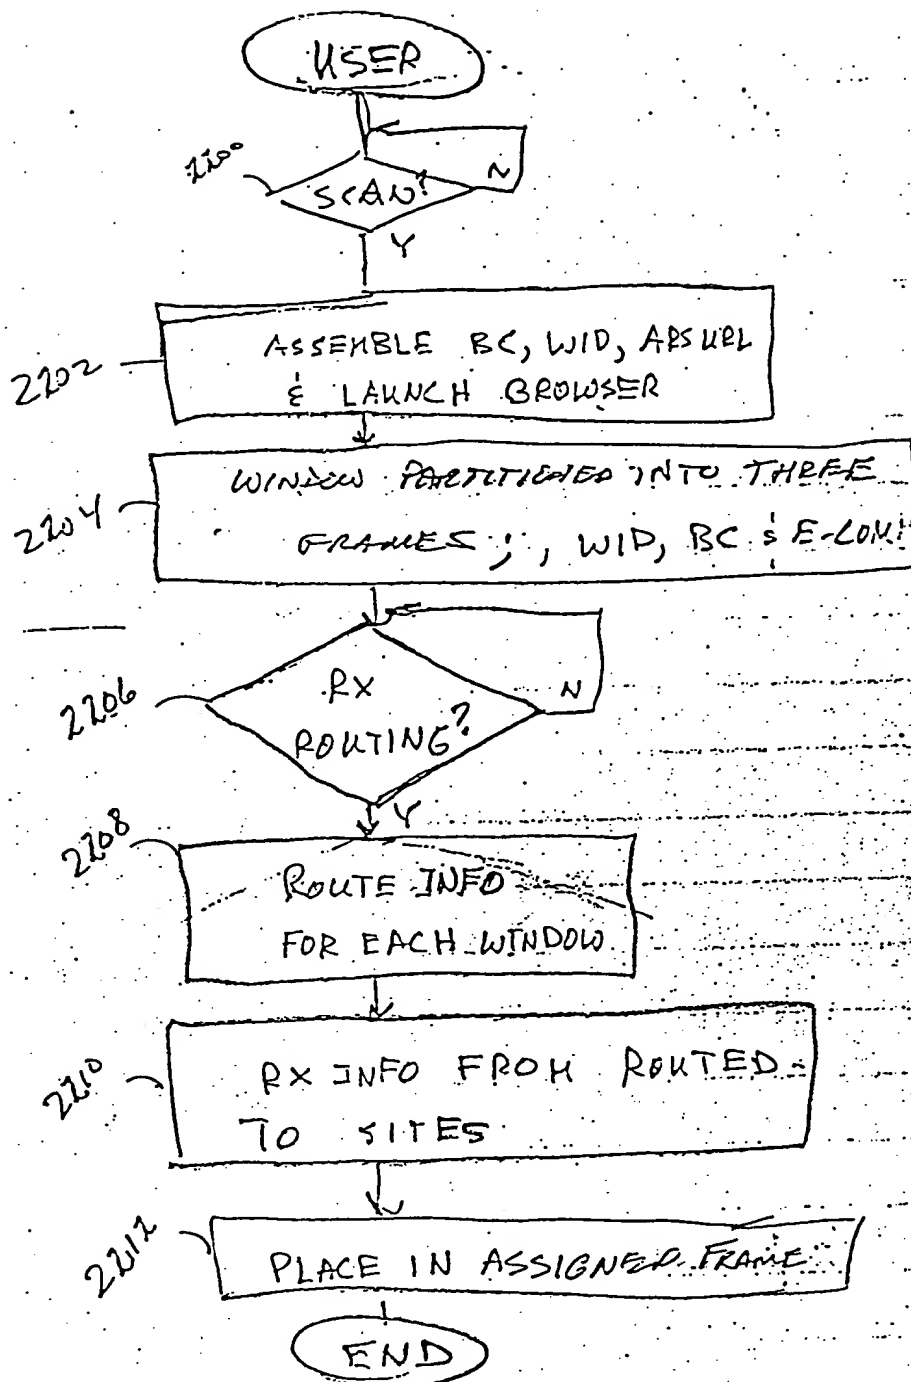 USER
2200
SCAN?
N
Y
2202
ASSEMBLE BC, WID, ARSURL
& LAUNCH BROWSER
2204
WINDOW PARTITIONED INTO THREE
FRAMES ; , WID, BC & E-COM
2206
RX
ROUTING?
N
Y
2208
ROUTE INFO
FOR EACH WINDOW
2210
RX INFO FROM ROUTED
TO SITES
2212
PLACE IN ASSIGNED FRAME
END